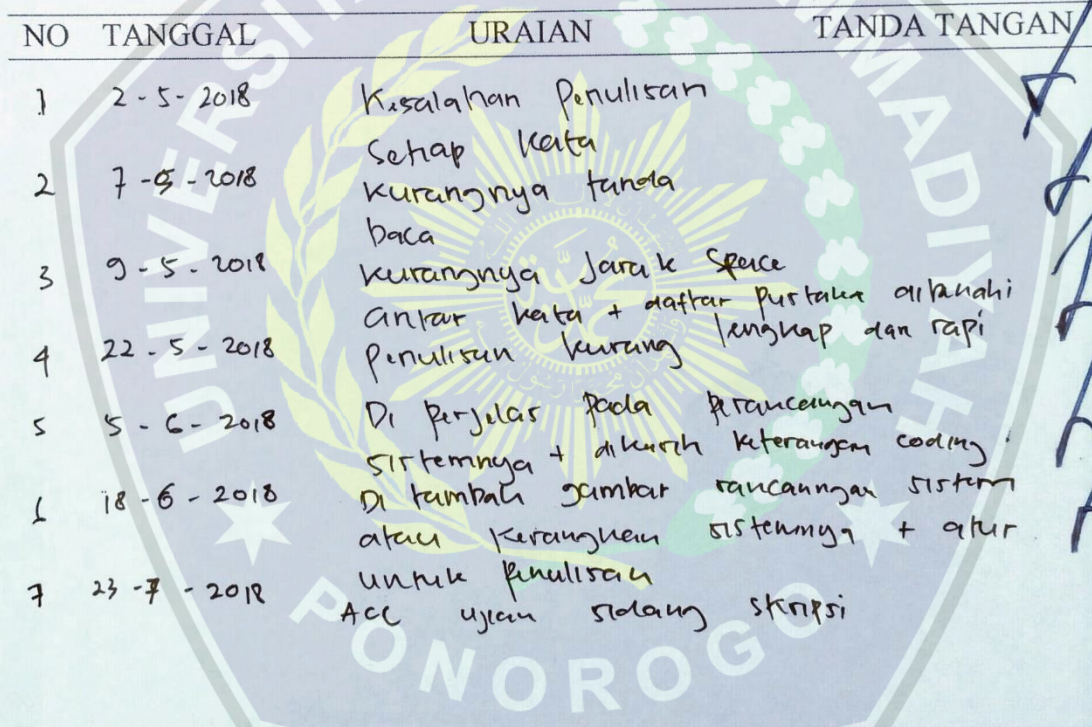 NO TANGGAL URAIAN TANDA TANGAN
1 2-5-2018 Kesalahan Penulisan
Setiap Kata
2 7-05-2018 kurangnya tanda
baca
3 9-5-2018 kurangnya Jarak Space
antar kata + daftar pustaka dibenahi
4 22-5-2018 penulisan kurang lengkap dan rapi
5 5-6-2018 Di perjelas pada perancangan
sistemnya + dikasih keterangan coding
6 18-6-2018 Di tambah gambar rancanngan sistem
atau kerangkan sistemnya + atur
untuk penulisan
7 23-7-2018 ACC ujian sidang skripsi
UNIVERSI
MADIYAH
PONOROGO